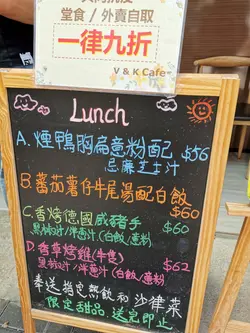 堂食 / 外賣自取
一律九折
V & K Cafe
Lunch
A. 煙鴨胸扁意粉配 $56
忌廉芝士汁
B. 蕃茄薯仔牛尾湯配白飯
$60
C. 香烤德國咸豬手 $60
黑椒汁/洋蔥汁(白飯/意粉
D 香草烤雞(半隻) $62
黑椒汁/洋蔥汁(白飯/意粉
奉送指定熱飲和沙律菜
限定甜品,送完即止